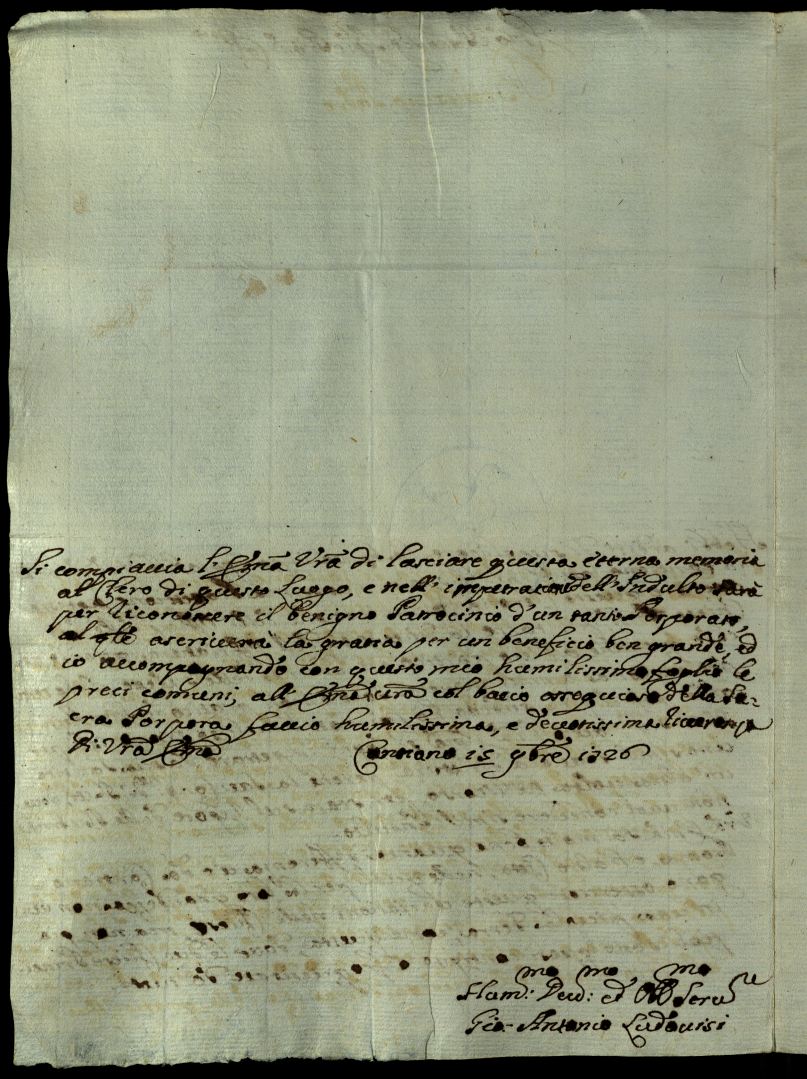 Si compiaccia l'Emza Vrã di lasciare questa eterna memoria
al Clero di questo Luogo, e nell'impetratione dell'Indulto sarà
per riconoscere il benigno Patrocinio d'un tanto Porporato,
al qle ascriverà la gratia per un beneficio ben grande, ed
io accompagnando con questo mio humilissimo foglio le
preci comuni; all' Emza Vrã col bacio ossequioso della Sa-
cra Porpora faccio humilissima, e devotissima riverenza
Di Vrã Emza Cantiano 15 9bre 1726
Hum:mo Dev:mo ed Obb:mo Servre
Gio: Antonio Ludovisi